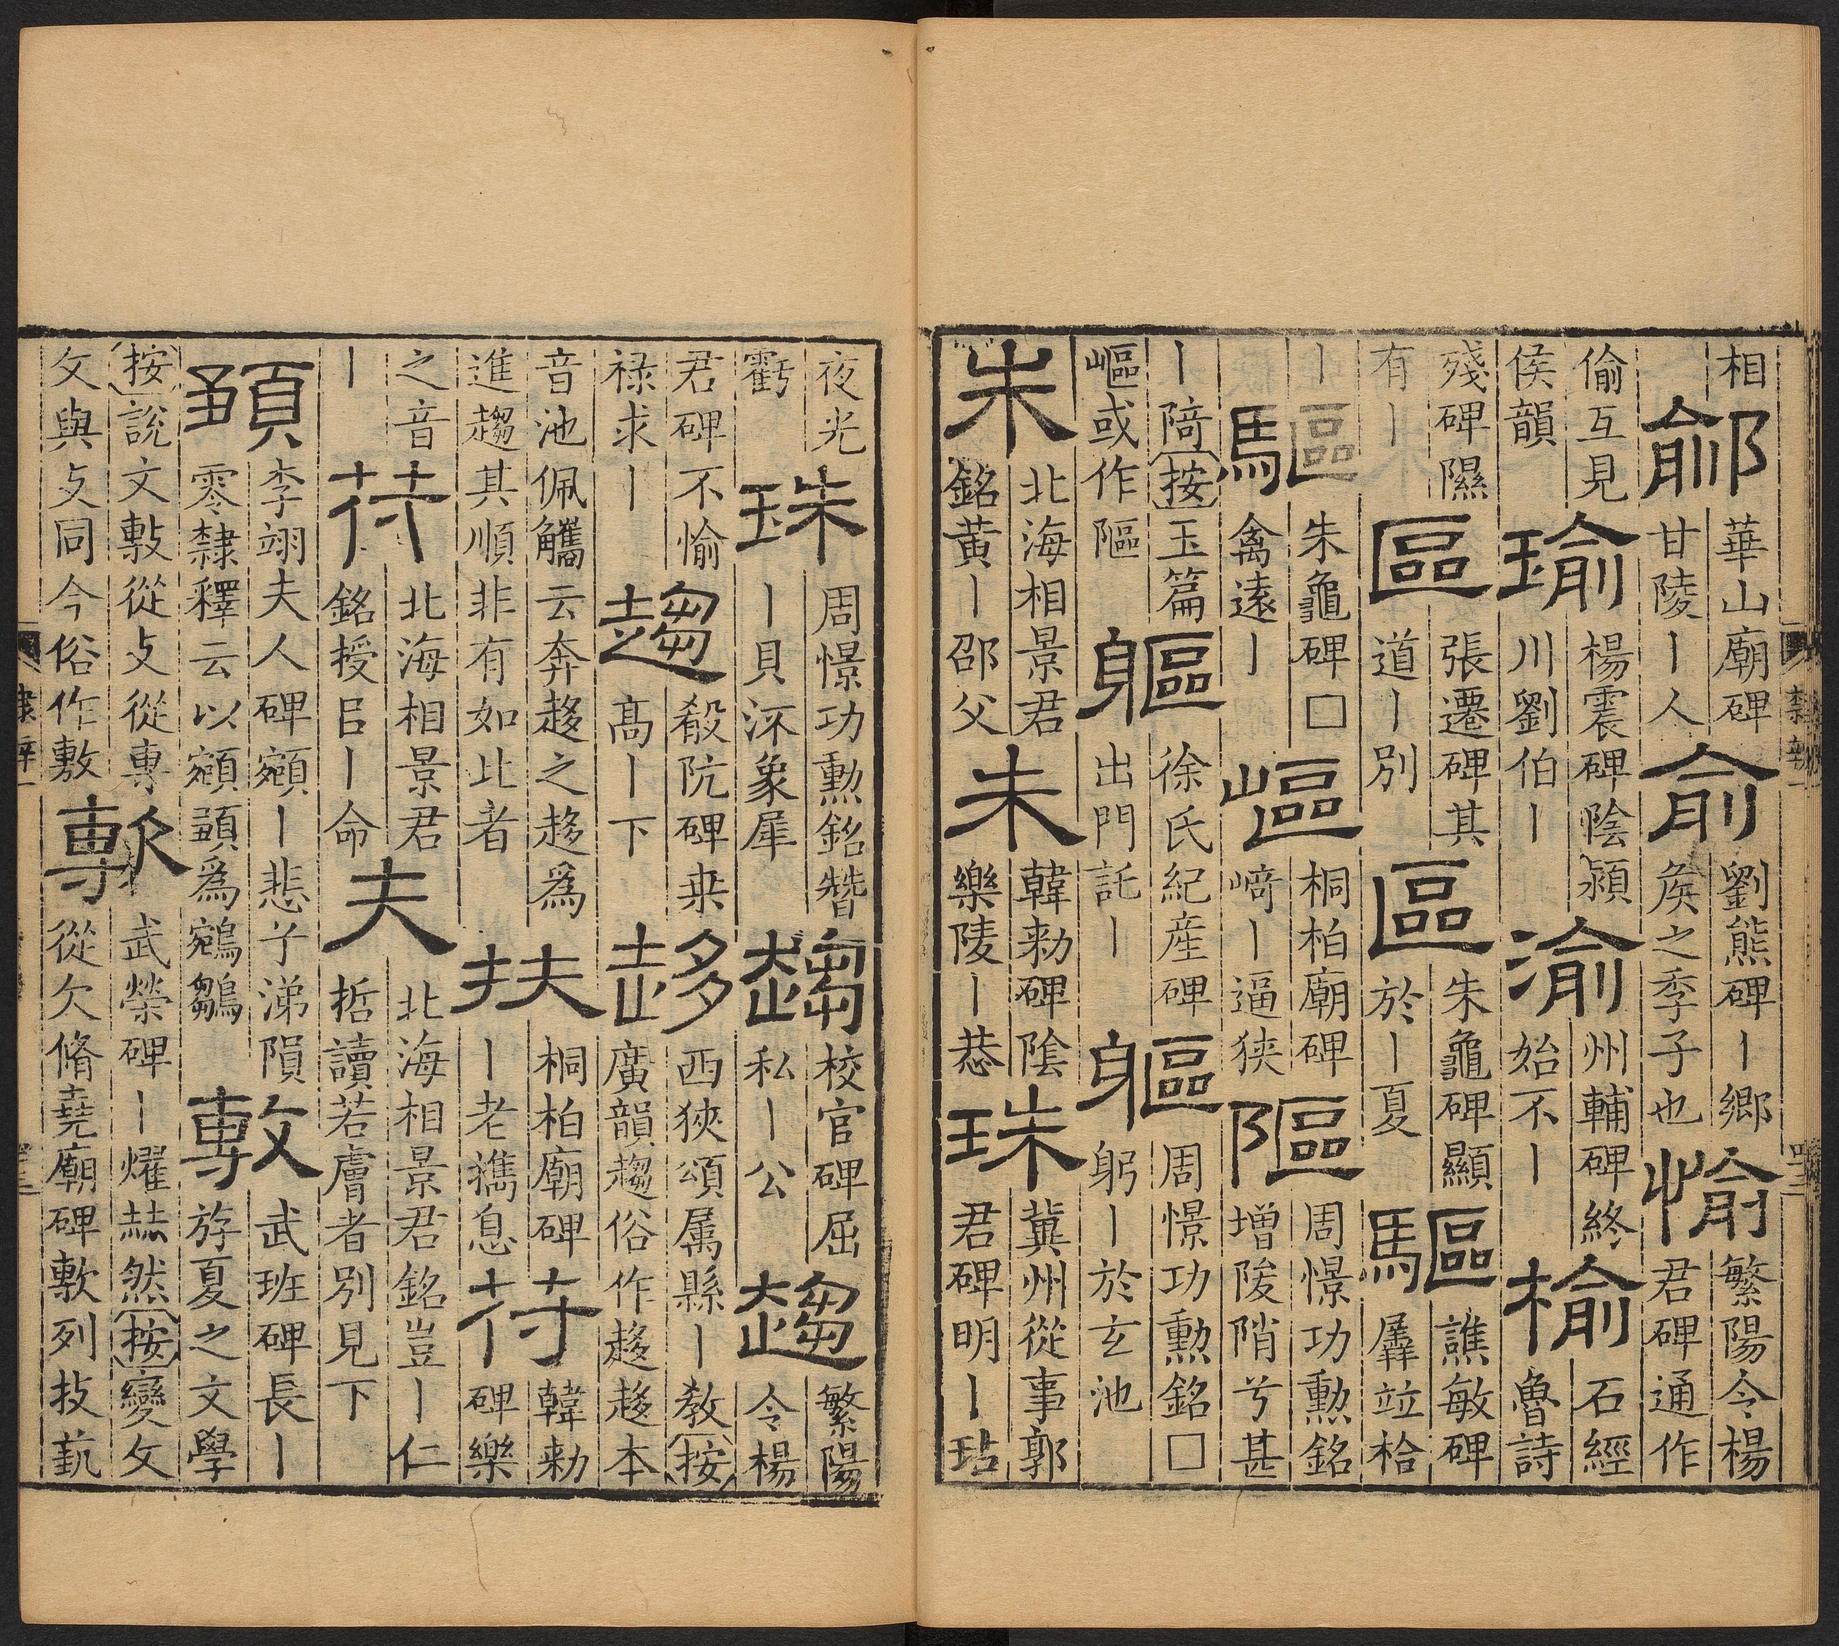 相鄃華山廟碑甘陵丨人俞劉熊碑丨鄉矦之季子也愉繁陽令楊君碑通作
偷互見侯韻瑜楊震碑陰潁川劉伯丨渝州輔碑終始不丨榆石經魯詩
殘碑隰有丨區張遷碑其道丨別區朱龜碑顯於丨夏驅譙敏碑羼竝拾
丨驅朱龜碑□禽遠丨嶇桐柏廟碑﨑丨逼狹䧢周憬功勳銘增陖陗兮甚
丨陭按玉篇嶇或作䧢軀徐氏紀産碑出門託丨軀周憬功勳銘□躬丨於玄池
朱北海相景君銘黃丨邵父朱韓勑碑陰樂陵丨恭珠冀州從事郭君碑明丨玷
夜光虧珠周憬功勳銘贊丨貝泝象犀趨校官碑屈私丨公趨繁陽令楊
君碑不愉祿求丨趨殽阬碑乗高丨下趍西狹頌属縣丨教按廣韻趨俗作趍趍本
音池佩觿云奔趍之趍爲進趨其順非有如此者扶桐柏廟碑丨老攜息苻韓勑碑樂
之音丨苻北海相景君銘授㠯丨命夫北海相景君銘豈丨仁哲讀若膚者別見下
李翊夫人碑丨悲子涕隕零隸釋云以爲鵷鶵敷武班碑長丨斿夏之文學
按說文敷從攴從專攵與攴同今俗作敷敷武榮碑丨燿赫然按變攵從欠脩堯廟碑敷列技蓺